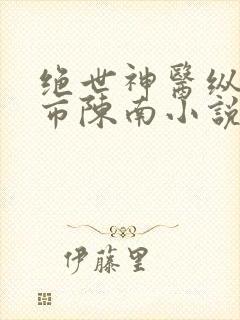 绝世神醫纵
市陳南小說
伊藤里